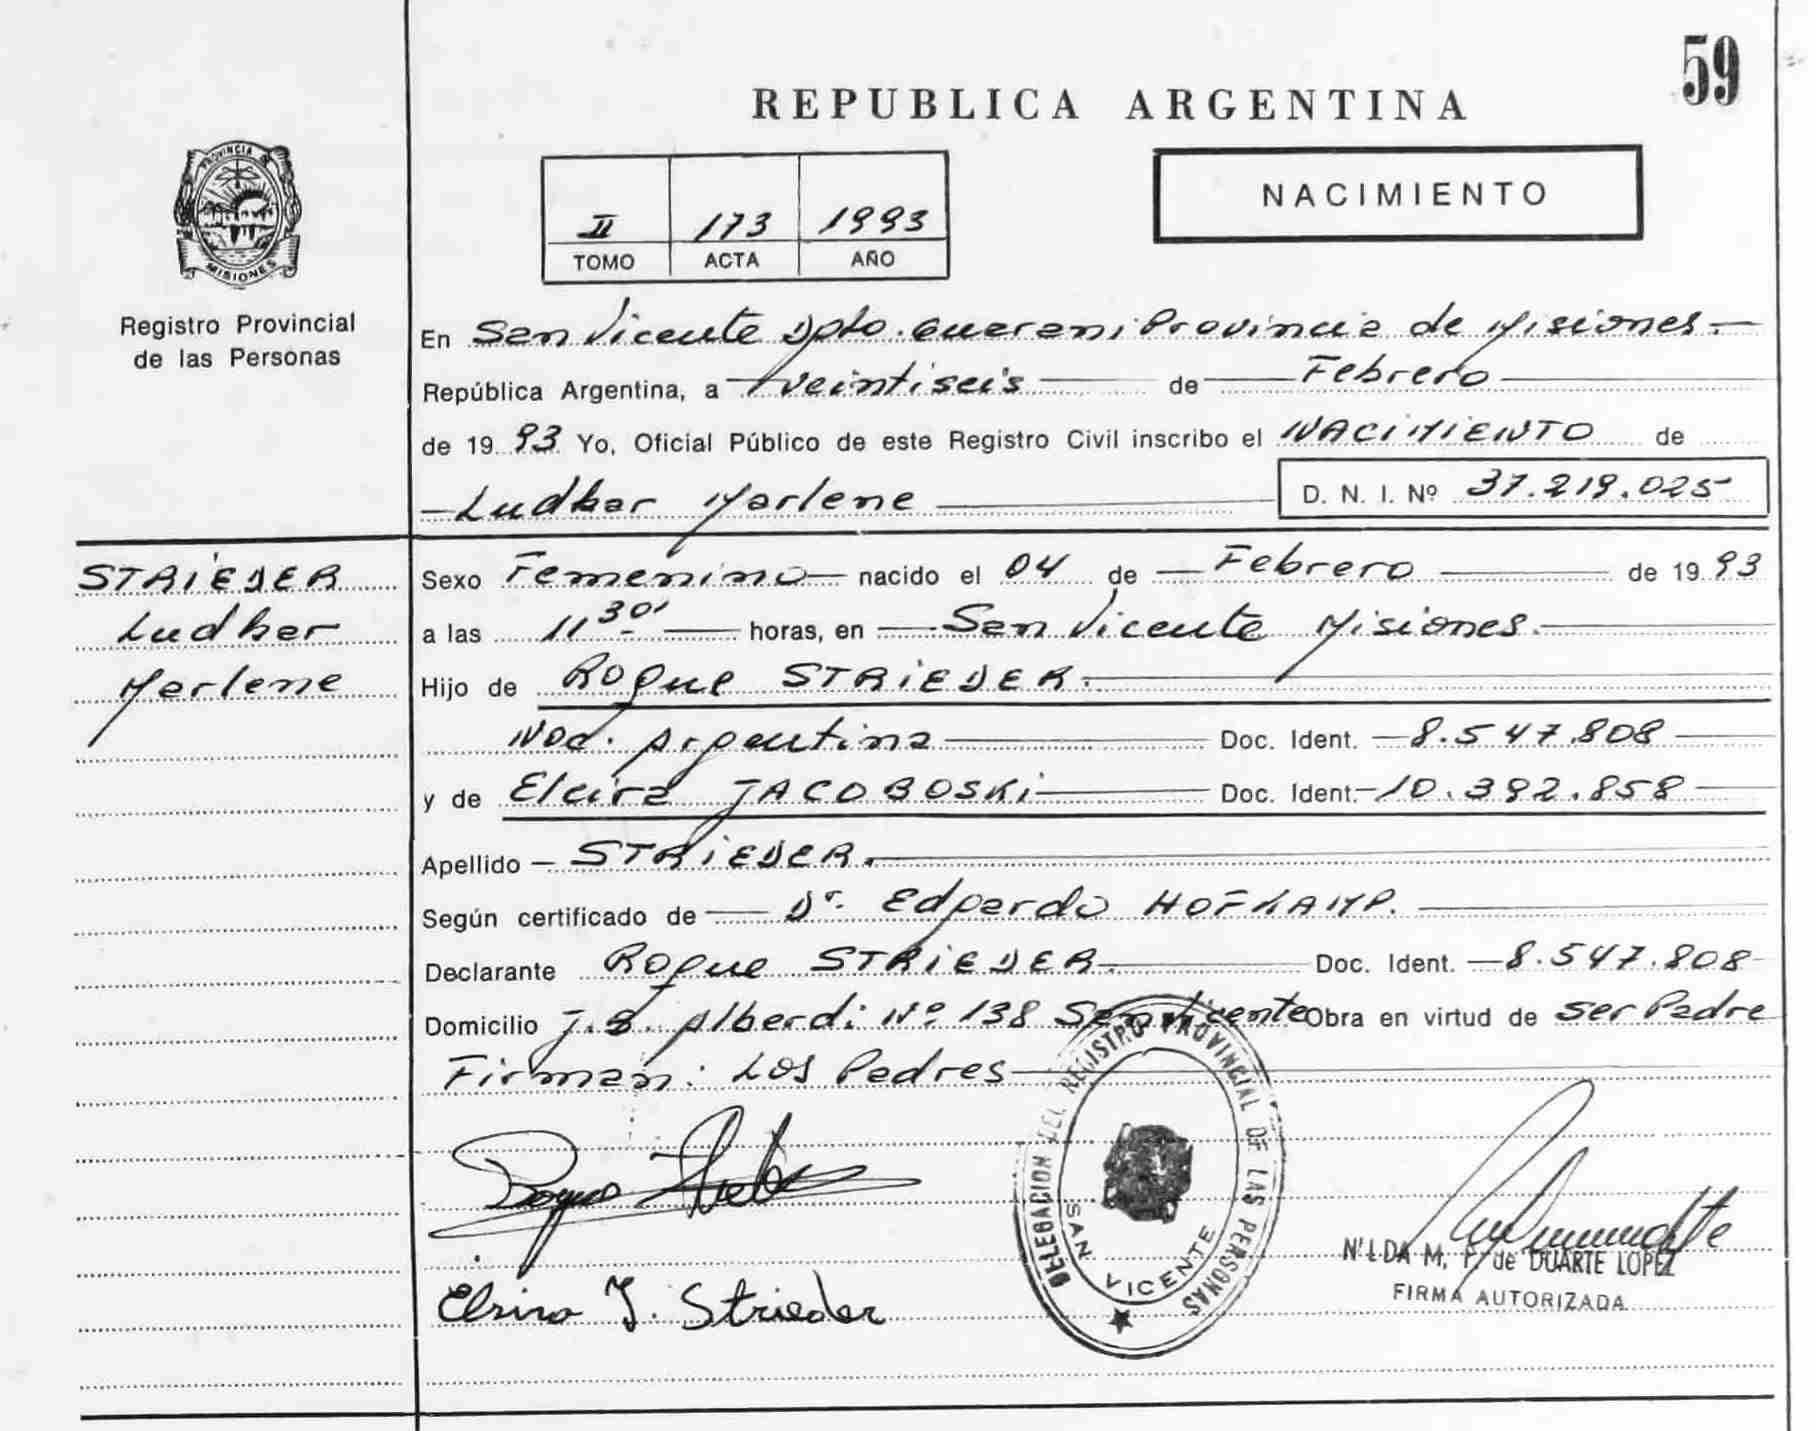 59
REPUBLICA ARGENTINA
NACIMIENTO
II 173 1993
TOMO ACTA AÑO
PROVINCIA DE MISIONES
Registro Provincial
de las Personas
En San Vicente Dpto. Guarani Provincia de Misiones.
República Argentina, a veintiseis de Febrero
de 1993 Yo, Oficial Público de este Registro Civil inscribo el NACIMIENTO de
Ludker Marlene D. N. I. Nº 37.219.025
STRIEDER
Ludker
Marlene
Sexo Femenino nacido el 04 de Febrero de 1993
a las 11 30' horas, en San Vicente Misiones.
Hijo de Roque STRIEDER.
Nac. Argentina Doc. Ident. 8.547.808
y de Elcira JACOBOSKI Doc. Ident. 10.392.858
Apellido STRIEDER.
Según certificado de Dr. Edgardo HOFKAMP.
Declarante Roque STRIEDER. Doc. Ident. 8.547.808
Domicilio J.B. Alberdi Nº 138 San Vicente Obra en virtud de ser Padre
Firman: Los Padres
Elsira J. Strieder
DELEGACION DEL REGISTRO PROVINCIAL DE LAS PERSONAS
SAN VICENTE
NILDA M. F. de DUARTE LOPEZ
FIRMA AUTORIZADA